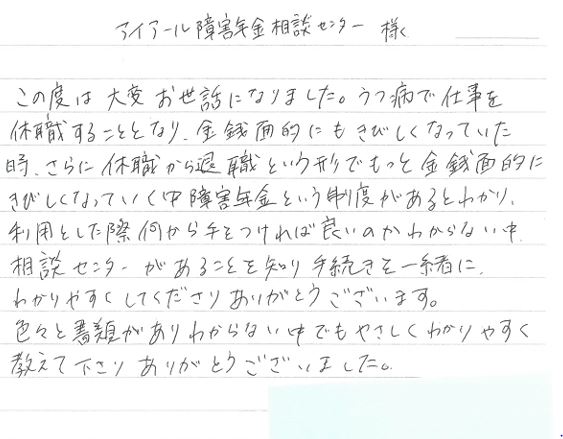 アイアール障害年金相談センター 様
この度は大変お世話になりました。うつ病で仕事を
休職することとなり、金銭面的にもきびしくなっていた
時、さらに休職から退職という形でもっと金銭面的に
きびしくなっていく中障害年金という制度があるとわかり、
利用とした際何から手をつければ良いのかわからない中
相談センターがあることを知り手続きを一緒に、
わかりやすくしてくださりありがとうございます。
色々と書類がありわからない中でもやさしくわかりやすく
教えて下さりありがとうございました。